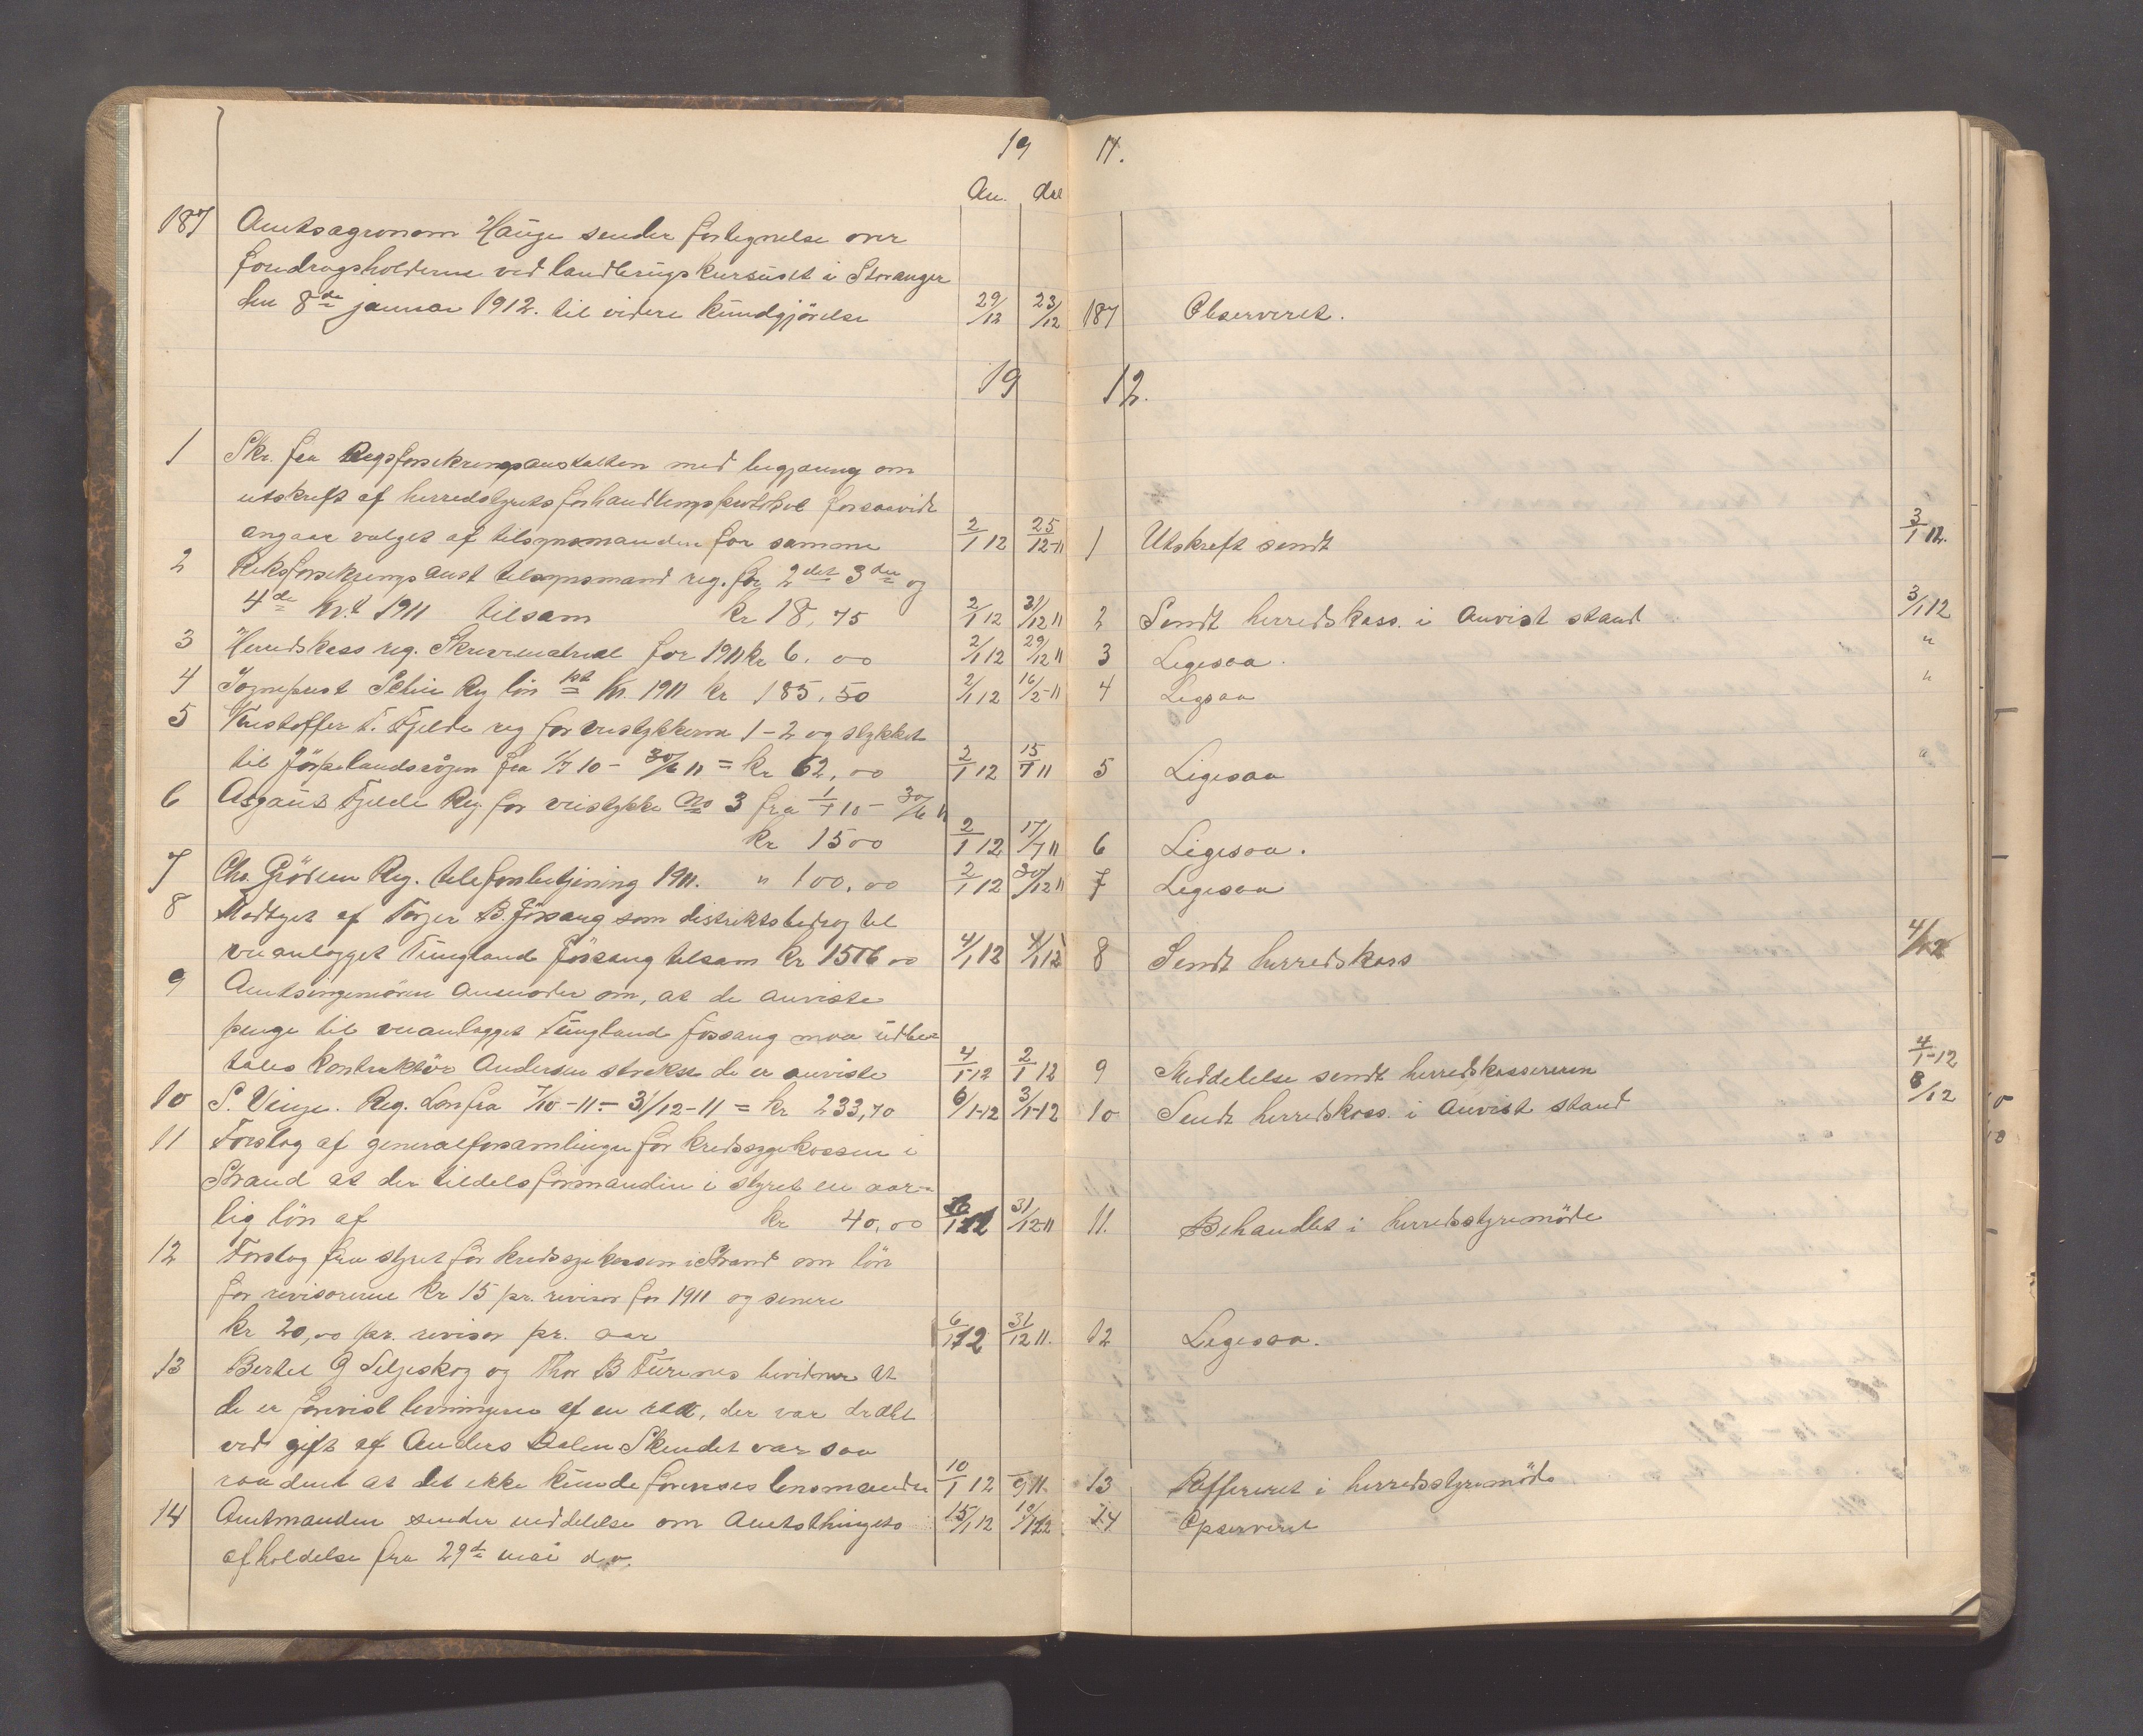 19 11.
An. dat
187 Amtsagronom Hauge sender fortegnelse over
foredragsholderne ved landbrugskursuset i Stavanger
den 8de januar 1912. til videre kundgjørelse 29/12 23/12 187 Observeret.
19 12.
1 Skr. fra Regsforsikringsanstalten med begjæring om
utskrift af herredstyrets forhandlingsprotokol forsaavidt
angaar valget af tilsynsmanden for samme 2/1 12 25/12-11 1 Utskrift sendt 3/1 12.
2 Riksforsikrings anst tilsynsmand reg. for 2det 3die og
4de kv.t 1911 tilsam kr 18,75 2/1 12 31/12 11 2 Sendt herredskass. i anvist stand 3/1 12
3 Herredskass reg. Skrivematrial for 1911 kr 6.00 2/1 12 29/12 11 3 Ligesaa. "
4 Sogneprest Reg løn kv. 1911 kr 185.50 2/1 12 16/2-11 4 Ligsaa "
5 Kristoffer T. Fjelde reg for veistykkerne 1-2 og stykket
til Jørpelandsvågen fra 1/7 10 - 30/6 11 = kr 62,00 2/1 12 15/7 11 5 Ligesaa "
6 Asgaut Fjelde Reg. for veistykke No 3 fra 1/7 10 - 30/6 11
kr 1500 2/1 12 17/7 11 6 Ligesaa.
7 Chr. Grödem Reg. telefonbetjening 1911. " 100.00 2/1 12 30/12 11 7 Ligesaa
8 Modtaget af Torger B. Jøssang som distriktsbedrag til
veianlægget Tungland Jøssang tilsam kr 1516 00 4/1 12 4/1 12 8 Sendt herredskass 4/1 12
9 Amtsingeniøren anmoder om, at de anviste
penge til veianlægget Tungland Jøssang maa udbe-
tales kontraktør Andersen straks de er anviste 4/1-12 2/1 12 9 Meddelelse sendt herredskassereren 4/1-12
10 S. Veige. Reg. Løn fra 7/10-11 = 31/12-11 = kr 233,70 6/1-12 3/1-12 10 Sendt herredskass. i anvist stand 6/12
11 Forslag af generalforsamlingen for kredssygekassen i
Strand at der tildels formanden i styret en aar-
lig løn af kr 40,00 31/12-11 11. Behandlet i herredsstyremøde
12 Forslag fra styret for kredssygekassen i Strand om løn
for revisorerne kr 15 pr. revisor for 1911 og senere
kr 20,00 pr. revisor pr. aar 6/1 12 31/12 11. 12 Ligesaa.
13 Bertel G Seljeskog og Thor B Turenes bevidner at
de er forevist levningerne af en ræv, der var dræbt
ved gift af Anders Dalen Skindet var saa
raadent at det ikke kunde forevises lensmanden 10/1 12 9 11. 13 Reffereret i herredsstyremøde
14 Amtmanden sender meddelelse om Amtsthingets 15/1 12 14 Opserveret
afholdelse fra 29de mai d.a.